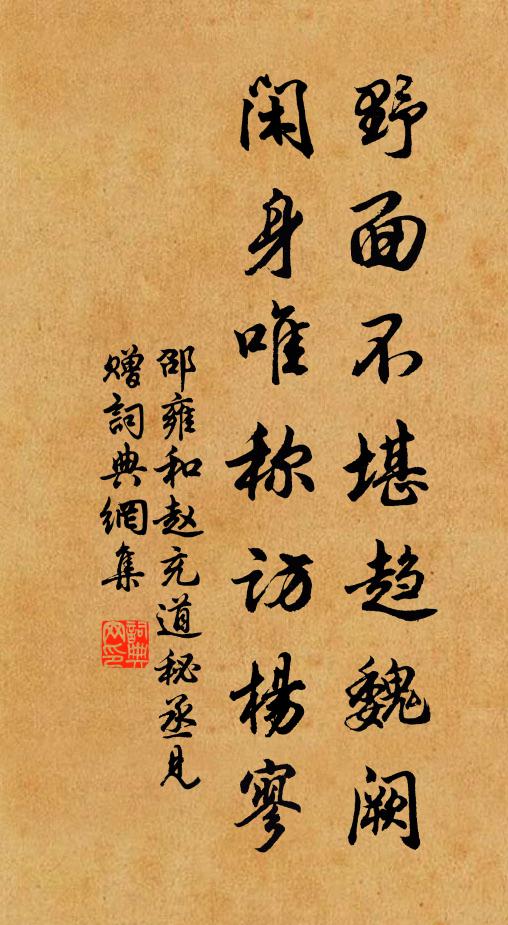 野面不堪趋魏阙
闲身唯称访杨寥
邵雍和赵充道秘丞见
赠词典網集
詞典
网印